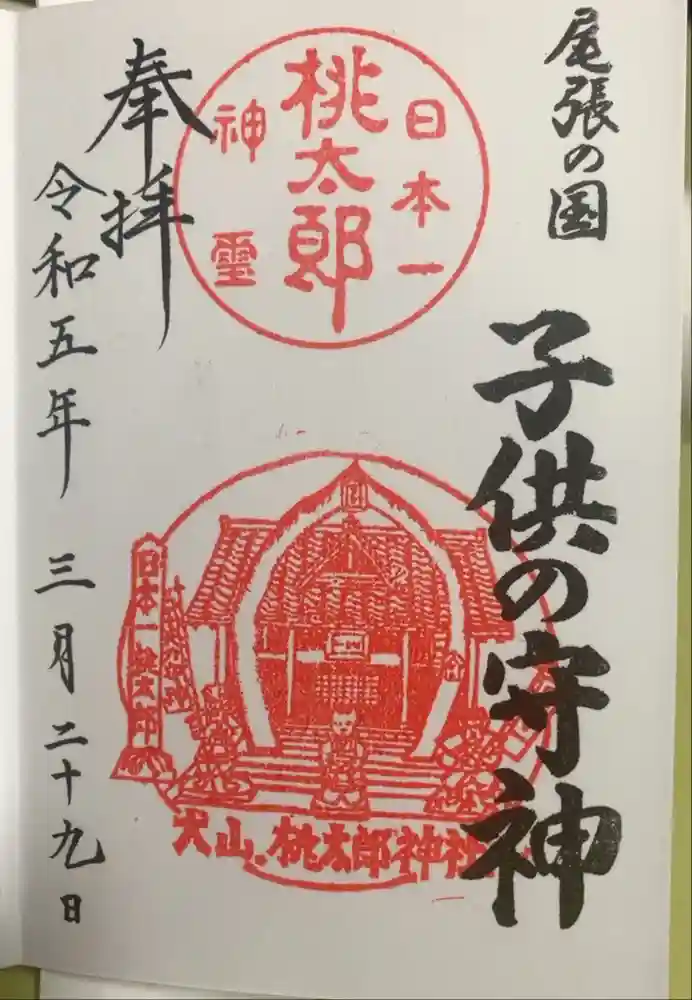 尾張の国
子供の守神
日本一
桃太郎
神霊
奉拝
令和五年 三月二十九日
日本一桃太郎
犬山・桃太郎神社